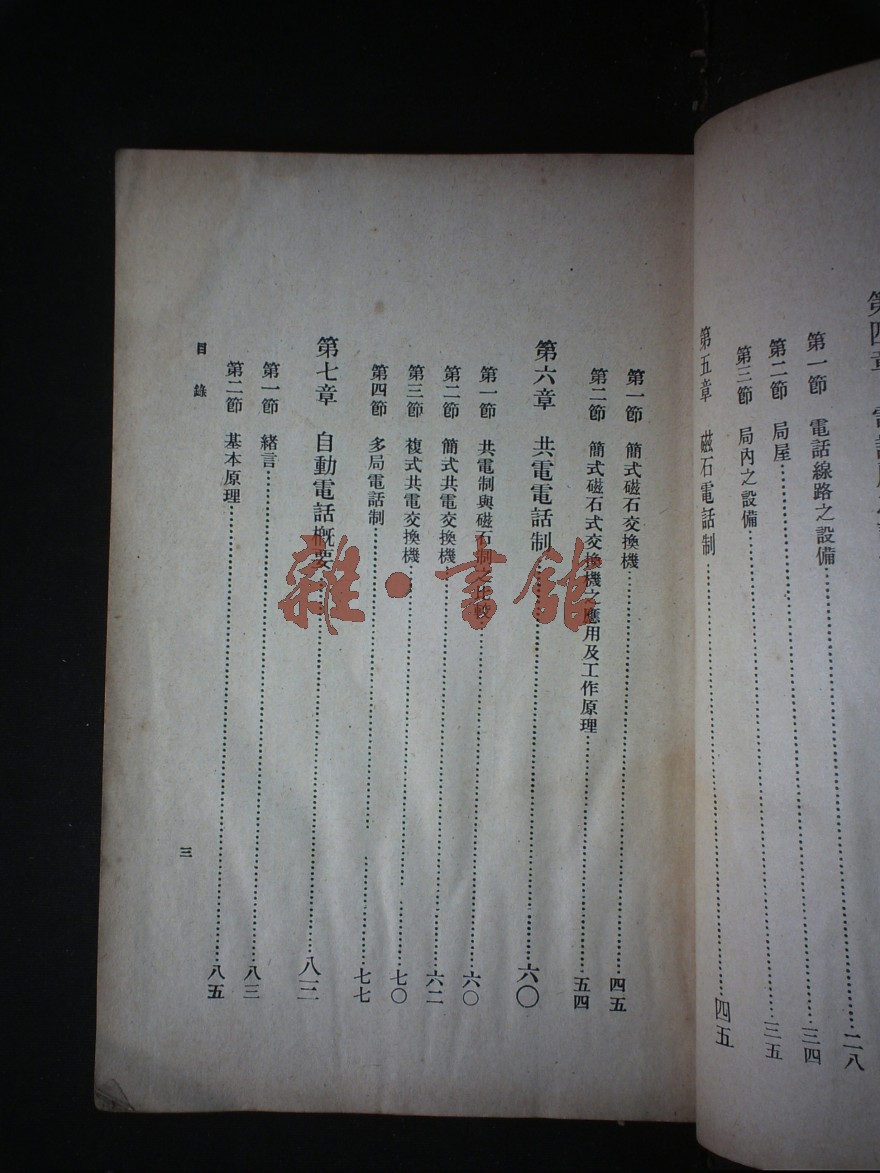 第一節　電話線路之設備……二八
第二節　局屋……三四
第三節　局內之設備……三五
第五章　磁石電話制……四五
第一節　簡式磁石交換機……四五
第二節　簡式磁石式交換機之應用及工作原理……五四
第六章　共電電話制……六〇
第一節　共電制與磁石制之比較……六〇
第二節　簡式共電交換機……六二
第三節　複式共電交換機……七〇
第四節　多局電話制……七七
第七章　自動電話概要……八三
第一節　緒言……八三
第二節　基本原理……八五
目錄
三
雜·書館